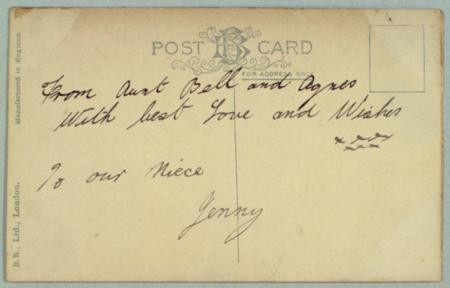 POST B CARD
FOR ADDRESS ONLY
From Aunt Bell and Agnes
With best Love and Wishes
xxxx
xxx
To our Niece
Jenny
Manufactured in England.
B.B., Ltd., London.